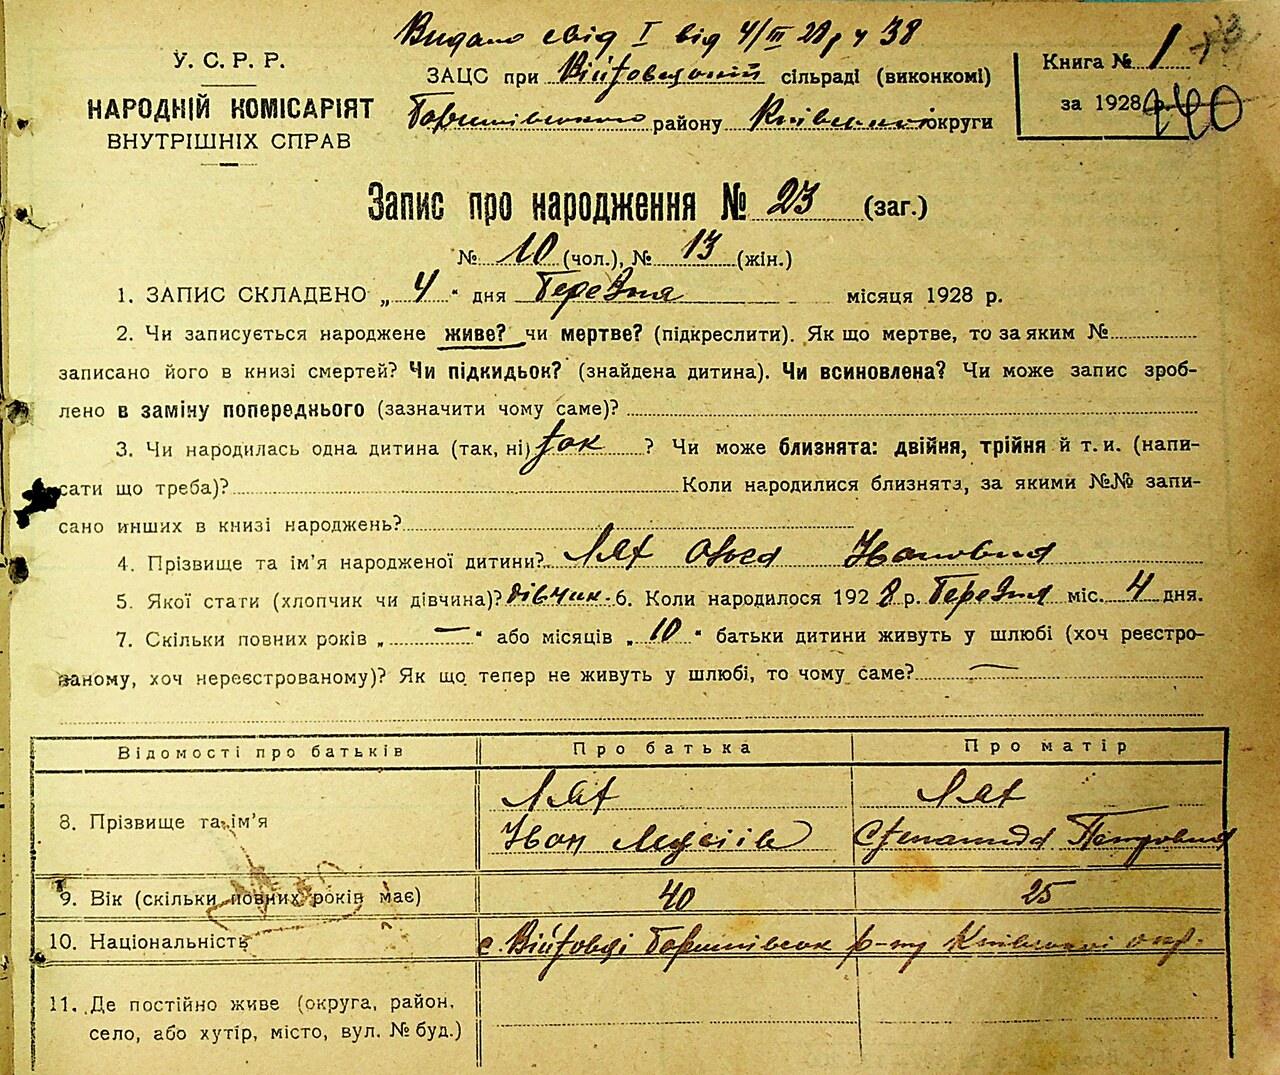 Видано свід I від 4/III 28 р ч 38
У. С. Р. Р.
НАРОДНІЙ КОМІСАРІЯТ
ВНУТРІШНІХ СПРАВ
ЗАЦС при Війтовецькій сільраді (виконкомі)
Баришівського району Київської округи
Книга № 1
за 1928 р.
440
Запис про народження № 23 (заг.)
№ 10 (чол.), № 13 (жін.)
1. ЗАПИС СКЛАДЕНО „ 4 " дня Березня місяця 1928 р.
2. Чи записується народжене живе? чи мертве? (підкреслити). Як що мертве, то за яким №
записано його в книзі смертей? Чи підкидьок? (знайдена дитина). Чи всиновлена? Чи може запис зроб-
лено в заміну попереднього (зазначити чому саме)?
3. Чи народилась одна дитина (так, ні) так ? Чи може близнята: двійня, трійня й т. и. (напи-
сати що треба)? Коли народилися близнята, за якими №№ запи-
сано инших в книзі народжень?
4. Прізвище та ім'я народженої дитини? Лях Ольга Івановна
5. Якої стати (хлопчик чи дівчина)? дівчин. 6. Коли народилося 1928 р. Березня міс. 4 дня.
7. Скільки повних років „ — " або місяців „ 10 " батьки дитини живуть у шлюбі (хоч реєстро-
ваному, хоч нереєстрованому)? Як що тепер не живуть у шлюбі, то чому саме? —
Відомості про батьків Про батька Про матір
8. Прізвище та ім'я
Лях
Іван Мусіїв
Лях
Степанида Петровна
9. Вік (скільки повних років має) 40 25
10. Національність с. Війтовці Баришівськ р-ну Київської окр.
11. Де постійно живе (округа, район,
село, або хутір, місто, вул. № буд.)